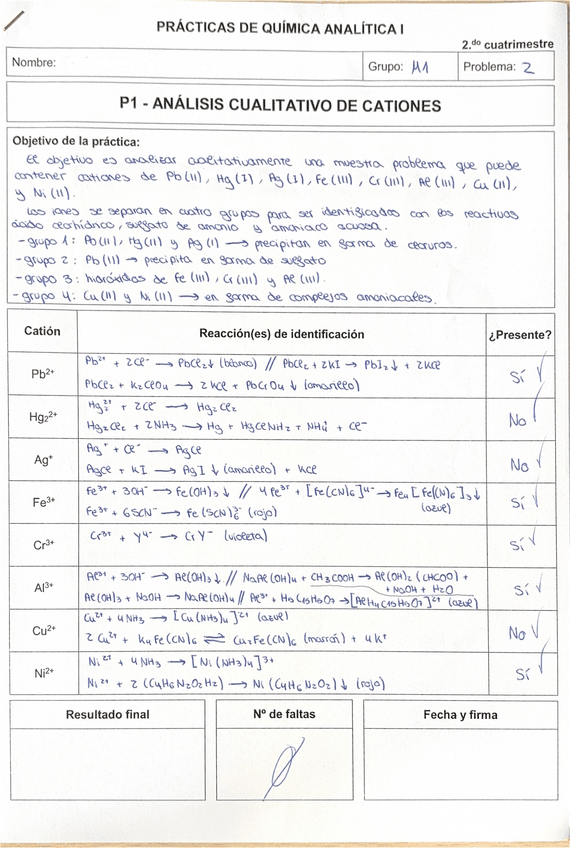 PRÁCTICAS DE QUÍMICA ANALÍTICA I
2.do cuatrimestre
Nombre: Grupo: M1 Problema: 2
P1 - ANÁLISIS CUALITATIVO DE CATIONES
Objetivo de la práctica:
El objetivo es analizar cualitativamente una muestra problema que puede
contener cationes de Pb(II), Hg(I), Ag(I), Fe(III), Cr(III), Al(III), Cu(II),
y Ni(II).
Los iones se separan en cuatro grupos para ser identificados con los reactivos
ácido clorhídrico, sulfato de amonio y amoniaco acuoso.
- grupo 1: Pb(II), Hg(II) y Ag(I) → precipitan en forma de cloruros.
- grupo 2: Pb(II) → precipita en forma de sulfato
- grupo 3: hidróxidos de Fe(III), Cr(III) y Al(III).
- grupo 4: Cu(II) y Ni(II) → en forma de complejos amoniacales.
Catión Reacción(es) de identificación ¿Presente?
Pb²⁺ + 2Cl⁻ → PbCl₂↓ (blanco) // PbCl₂ + 2KI → PbI₂↓ + 2KCl
Pb²⁺ Sí
PbCl₂ + K₂CrO₄ → 2KCl + PbCrO₄↓ (amarillo)
Hg₂²⁺ + 2Cl⁻ → Hg₂Cl₂
Hg₂²⁺ No
Hg₂Cl₂ + 2NH₃ → Hg + HgClNH₂ + NH₄⁺ + Cl⁻
Ag⁺ + Cl⁻ → AgCl
Ag⁺ No
AgCl + KI → AgI↓ (amarillo) + KCl
Fe³⁺ + 3OH⁻ → Fe(OH)₃↓ // 4Fe³⁺ + [Fe(CN)₆]⁴⁻ → Fe₄[Fe(CN)₆]₃↓
(azul)
Fe³⁺ Sí
Fe³⁺ + 6SCN⁻ → Fe(SCN)₆³⁻ (rojo)
Cr³⁺ Cr³⁺ + Y⁴⁻ → CrY⁻ (violeta) Sí
Al³⁺ + 3OH⁻ → Al(OH)₃↓ // NaAl(OH)₄ + CH₃COOH → Al(OH)₂(CHCOO) +
+ NaOH + H₂O
Al³⁺ Sí
Al(OH)₃ + NaOH → NaAl(OH)₄ // Al³⁺ + H₅C₁₉H₉O₇ → [AlH₄C₁₉H₉O₇]²⁺ (azul)
Cu²⁺ + 4NH₃ → [Cu(NH₃)₄]²⁺ (azul)
Cu²⁺ No
2Cu²⁺ + K₄Fe(CN)₆ ⇌ Cu₂Fe(CN)₆ (marrón) + 4K⁺
Ni²⁺ + 4NH₃ → [Ni(NH₃)₄]³⁺
Ni²⁺ Sí
Ni²⁺ + 2(C₄H₆N₂O₂H₂) → Ni(C₄H₆N₂O₂)↓ (rojo)
Resultado final Nº de faltas Fecha y firma